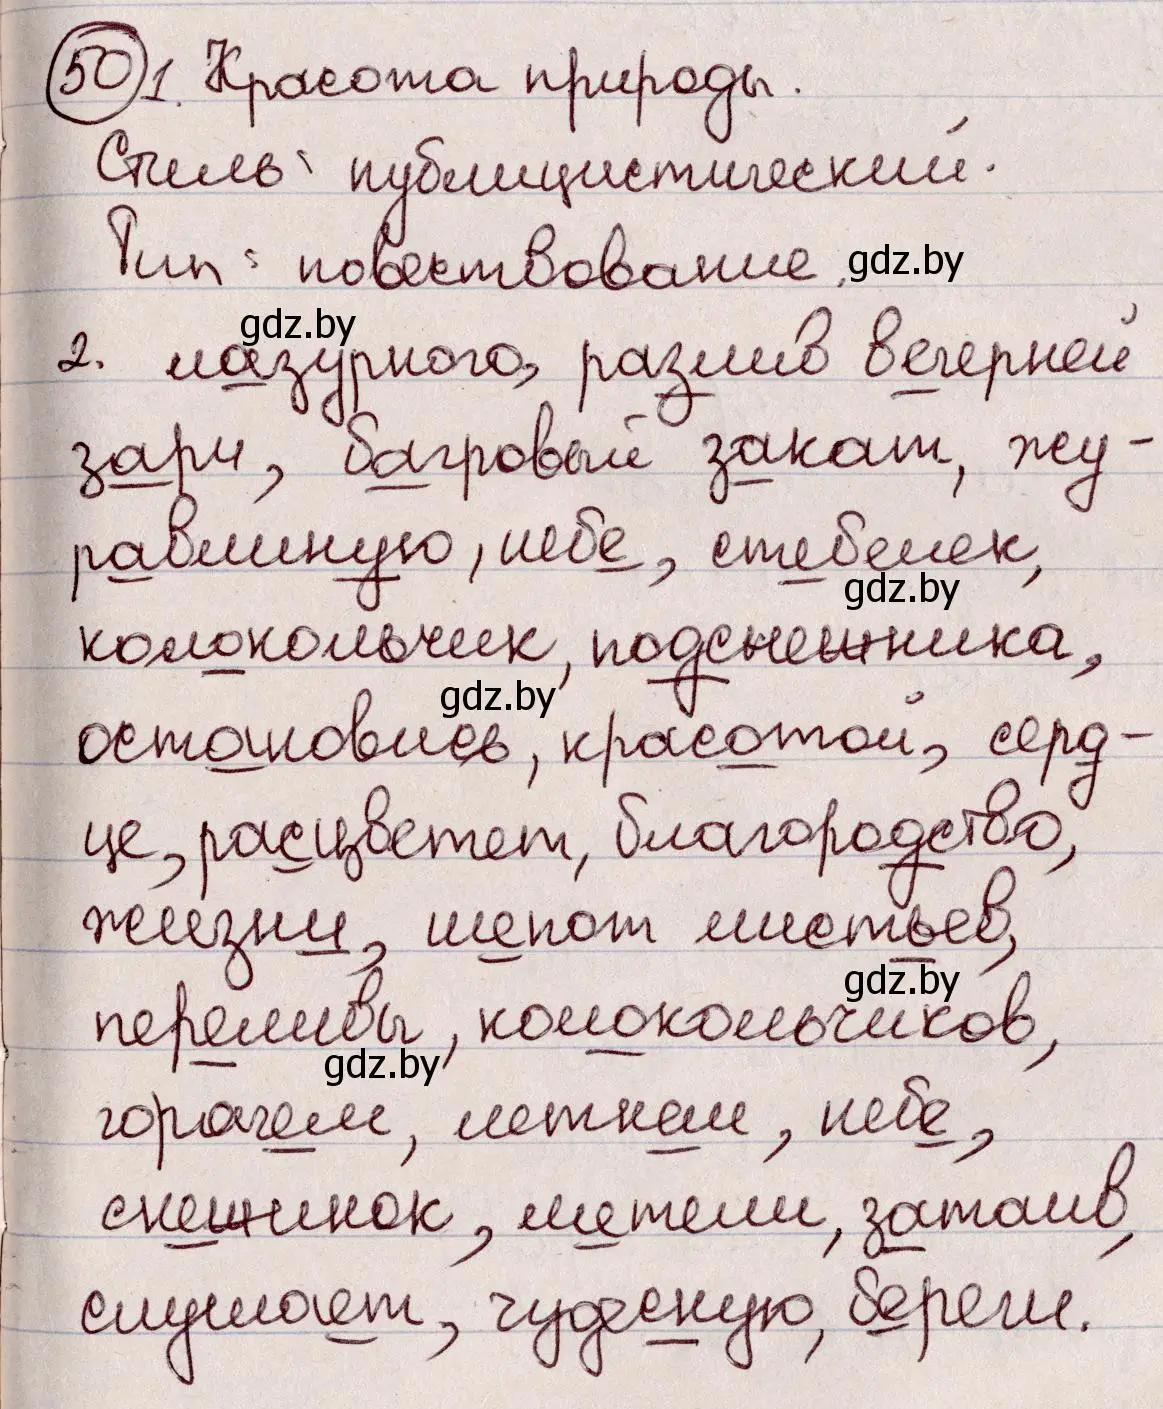 50 1. Красота природы.
Стиль: публицистический.
Тип: повествование.
gdz.by
gdz.by
2. лазурного, разлив вечерней
зари, багровый закат, жу-
равлиную, небе, стебелек,
gdz.by
колокольчик, подснежника,
gdz.by
остановись, красотой, серд-
це, расцветет, благородство,
жизни, шепот листьев,
gdz.by
переливы, колокольчиков,
gdz.by
горячем, летнем, небе,
снежинок, метели, затаив,
слушает, чудесную, береги.